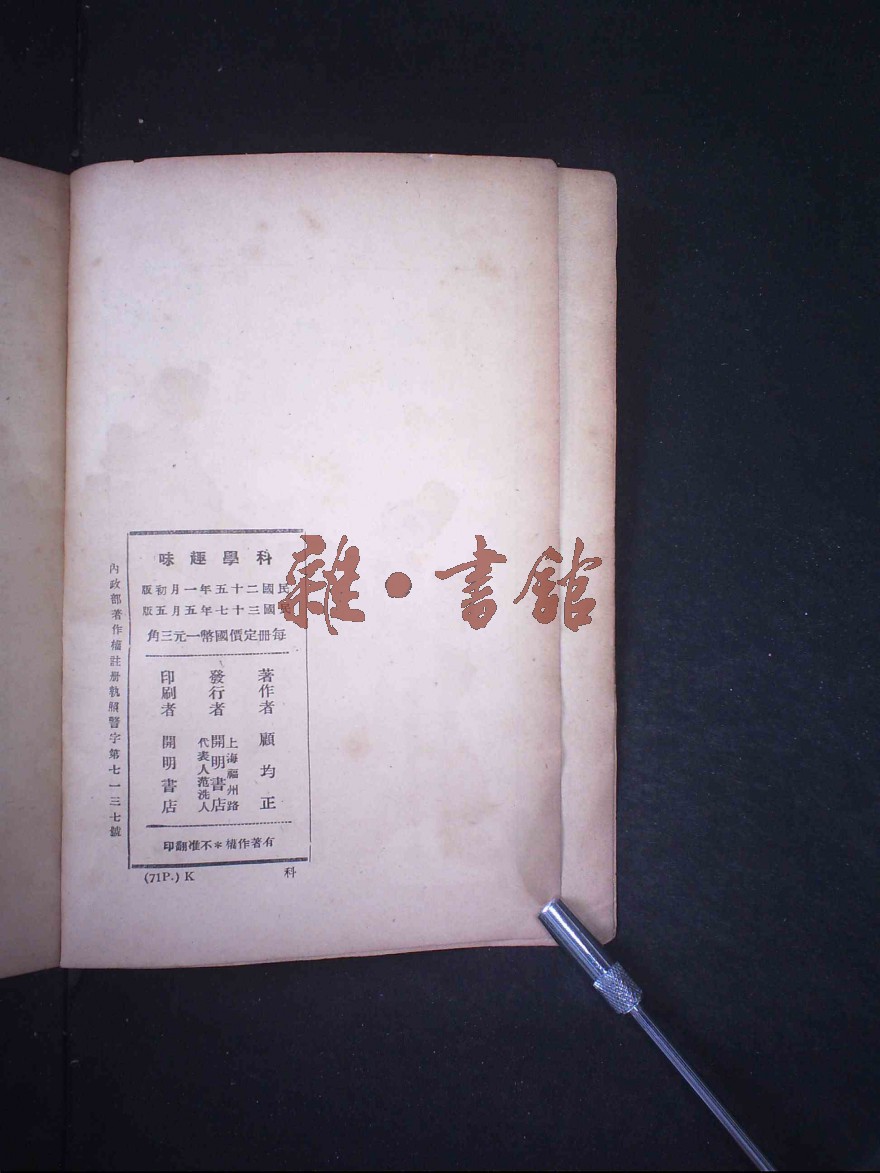 科學趣味
民國二十五年一月初版
民國三十七年五月五版
每冊定價國幣一元三角
著作者 顧均正
發行者 上海福州路
開明書店
代表人范洗人
印刷者 開明書店
有著作權*不准翻印
(71P.) K 科
內政部著作權註冊執照警字第七一三七號
雜·書館